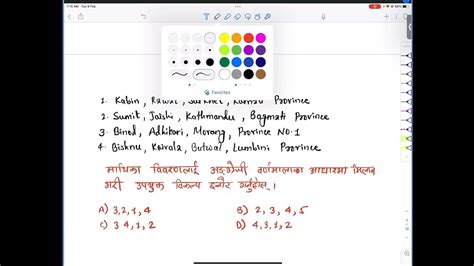 7:15 AM Tue 6 Feb
Favorites
1. Kabin, Rawal, Surkhet, Karnali Province
2. Sumit, Jaishi, Kathmandu, Bagmati Province
3. Binod, Adhikari, Morang, Province NO.1
4. Bishnu, Koirala, Butwal, Lumbini Province
माथिका विवरणलाई अङ्ग्रेजी वर्णमालाका आधारमा मिलान
गरी उपयुक्त विकल्प छनौट गर्नुहोस् ।
A) 3,2,1,4
B) 2, 3, 4, 5
C) 3 4, 1, 2
D) 4, 3, 1, 2